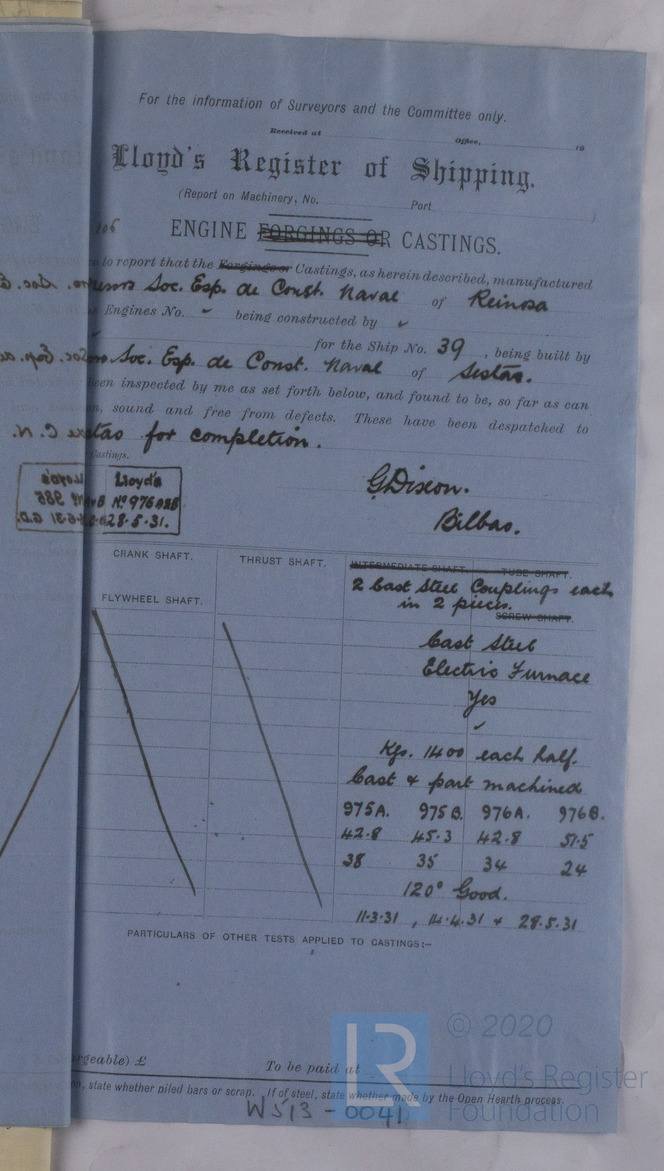 For the information of Surveyors and the Committee only.
Received at Office, 19
Lloyd's Register of Shipping.
(Report on Machinery, No. Port )
106
ENGINE FORGINGS OR CASTINGS.
to report that the Forgings or Castings, as herein described, manufactured
Soc. Esp. de Const. Naval of Reinosa
Engines No. being constructed by
for the Ship No. 39, being built by
Soc. Esp. de Const. Naval of Sestao.
been inspected by me as set forth below, and found to be, so far as can
, sound and free from defects. These have been despatched to
for completion.
Castings.
Lloyd's
No 976A&B
28.5.31.
G Dixon.
Bilbao.
CRANK SHAFT. THRUST SHAFT. INTERMEDIATE SHAFT. TUBE SHAFT.
2 Cast Steel Couplings each
in 2 pieces.
FLYWHEEL SHAFT. SCREW SHAFT.
Cast Steel
Electric Furnace
Yes
Kgs. 1400 each half.
Cast & part machined
975A. 975B. 976A. 976B.
42.8 45.3 42.8 51.5
38 35 34 24
120° Good.
11.3.31, 14.4.31 & 28.5.31
PARTICULARS OF OTHER TESTS APPLIED TO CASTINGS:—
rgeable) £ To be paid at
on, state whether piled bars or scrap. If of steel, state whether made by the Open Hearth process.
W513-0041
© 2020
Lloyd's Register
Foundation
LR